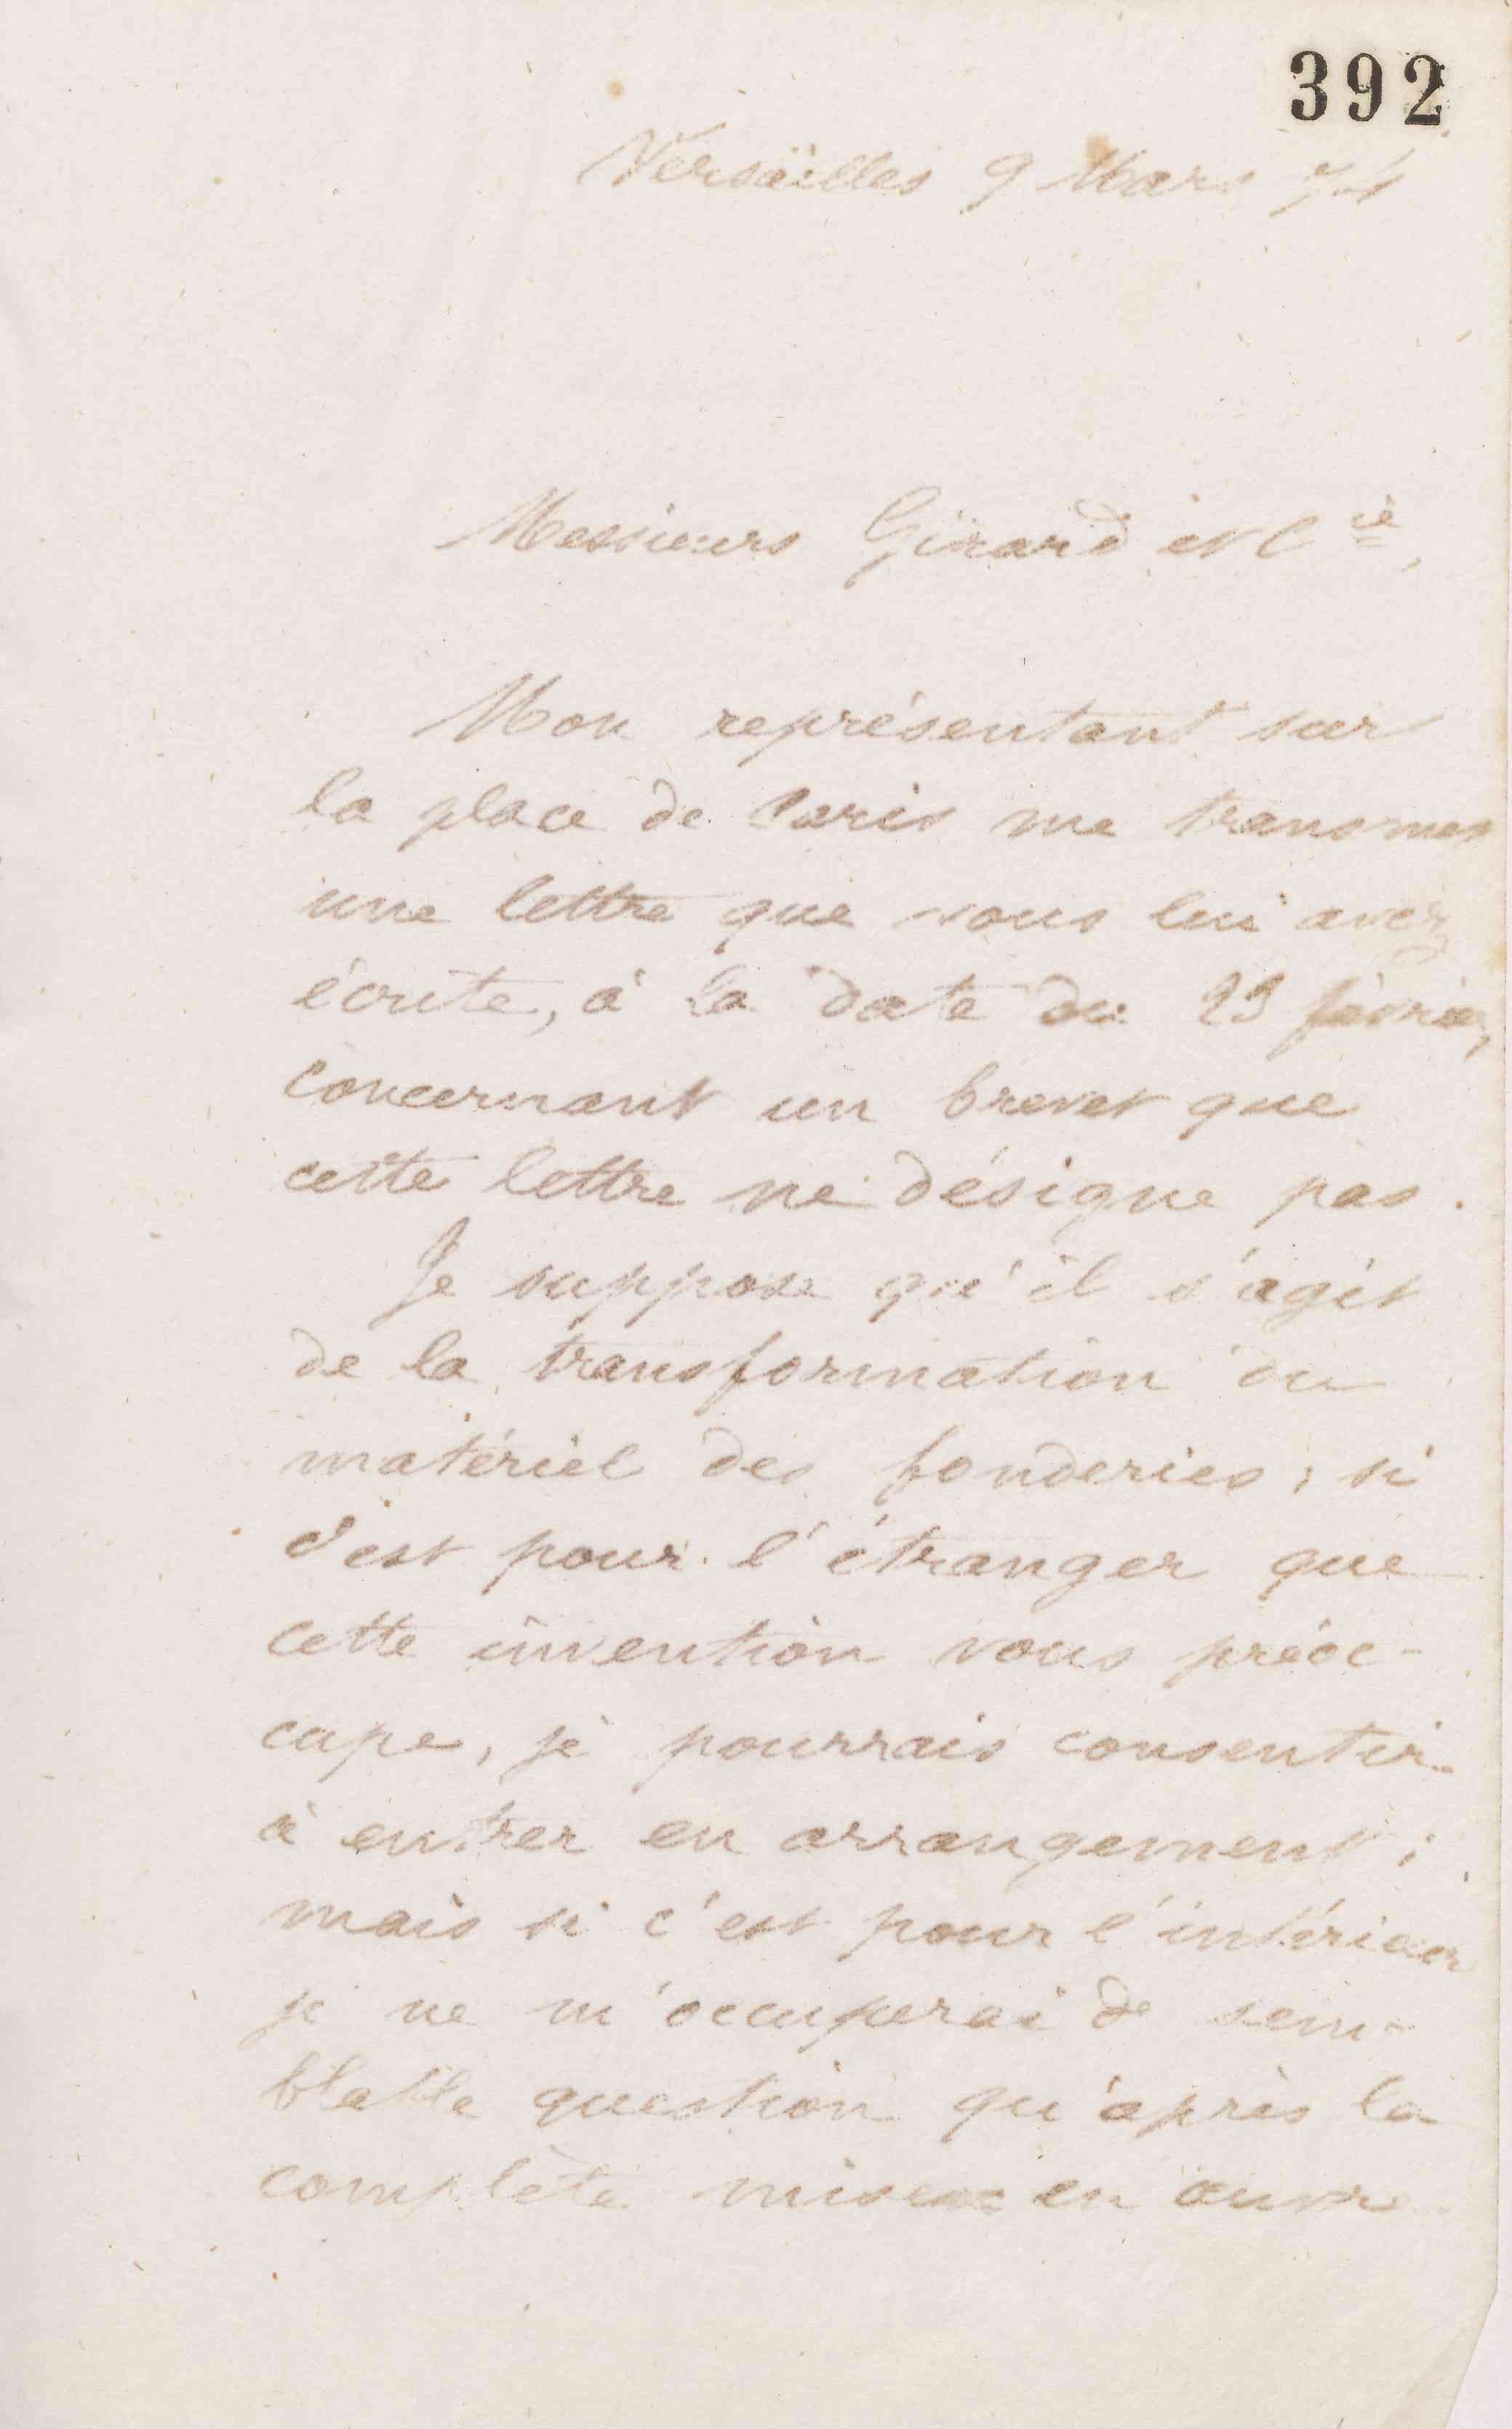 392
Versailles 9 Mars 74
Messieurs Girard et Cie,
Mon représentant sur
la place de Paris me transmet
une lettre que vous lui avez
écrite, à la date du 23 février,
concernant un brevet que
cette lettre ne désigne pas.
Je suppose qu'il s'agit
de la transformation du
matériel des fonderies; si
c'est pour l'étranger que
cette invention vous préoc-
cupe, je pourrais consentir
à entrer en arrangement;
mais si c'est pour l'intérieur
je ne m'occuperai de sem-
blable question qu'après la
complète mise en œuvre